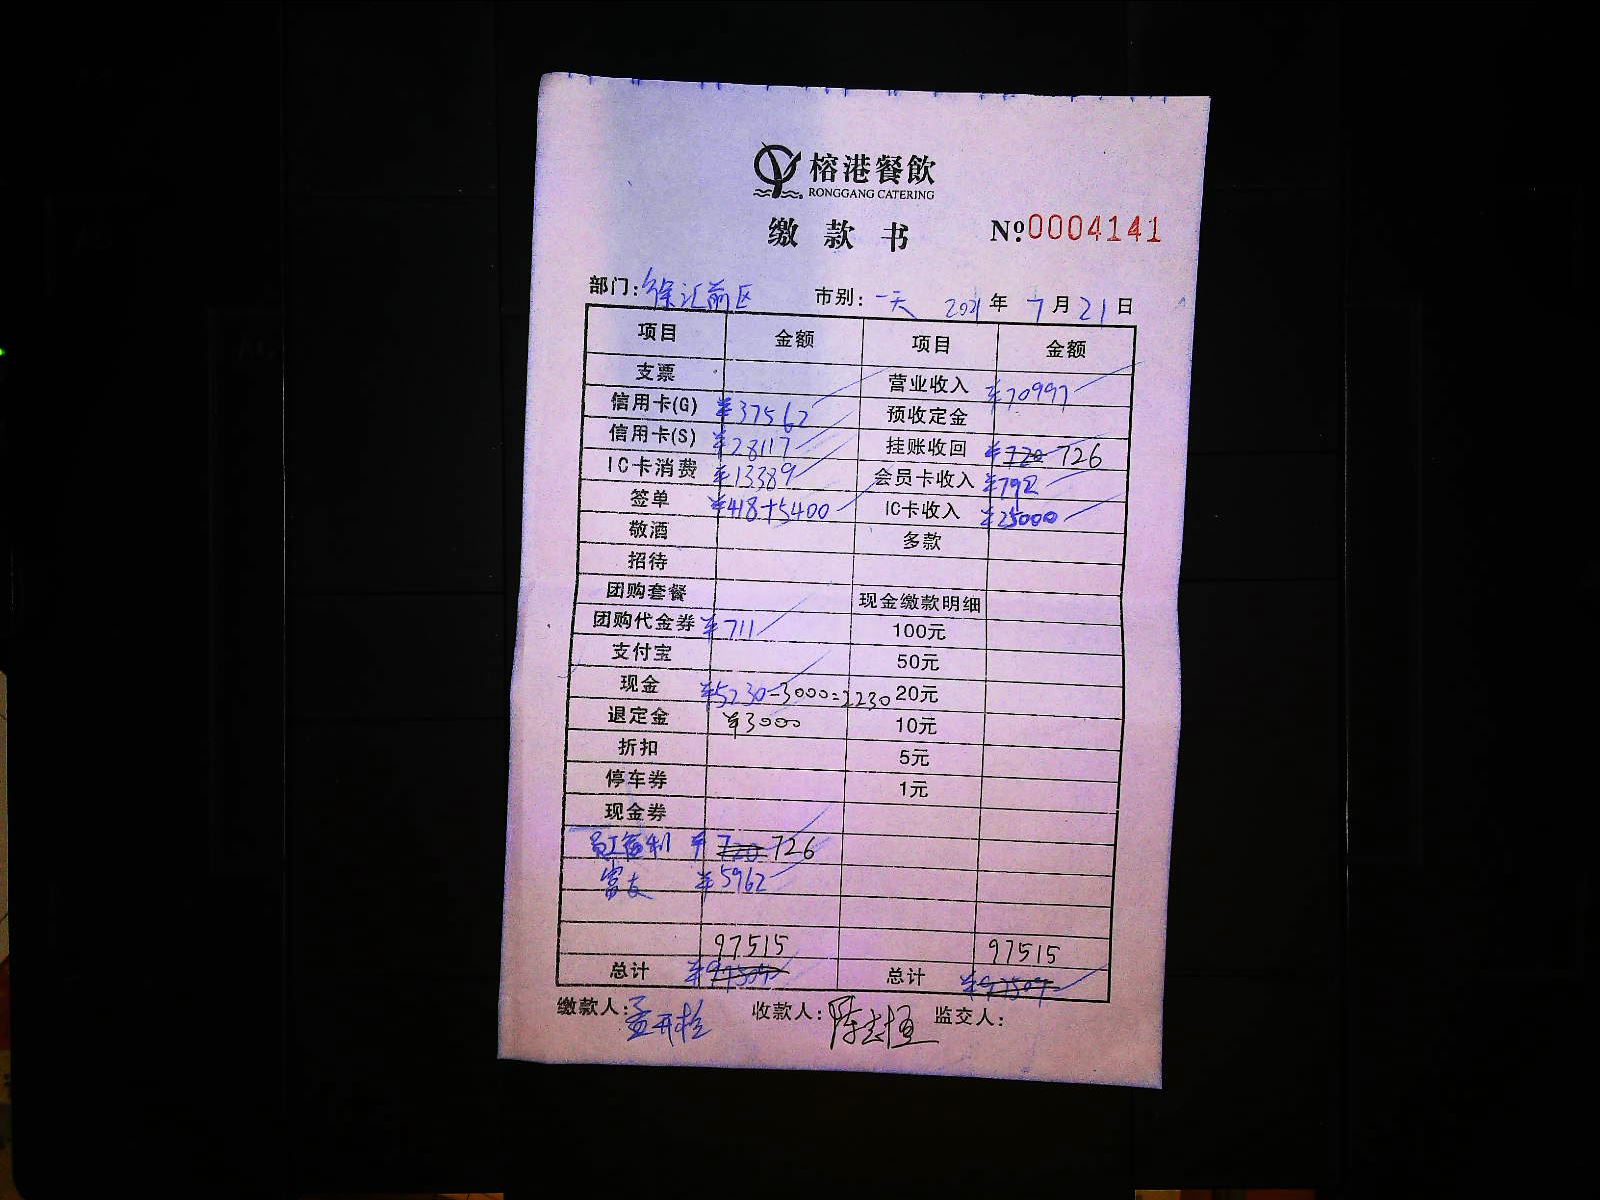 榕港餐飲
RONGGANG CATERING
缴款书 Nº:0004141
部门:徐汇前区 市别:一天 2021年7月21日
项目 金额 项目 金额
支票 营业收入 ¥70997
信用卡(G) ¥37562 预收定金
信用卡(S) ¥28117 挂账收回 ¥720 726
IC卡消费 ¥13389 会员卡收入 ¥792
签单 ¥418+5400 IC卡收入 ¥25000
敬酒 多款
招待
团购套餐 现金缴款明细
团购代金券 ¥711 100元
支付宝 50元
现金 ¥5230-3000=2230 20元
退定金 ¥3000 10元
折扣 5元
停车券 1元
现金券
员工福利 ¥720 726
富友 ¥5962
97515 97515
总计 ¥97509 总计 ¥97509
缴款人:孟开栓 收款人:陈志恒 监交人: